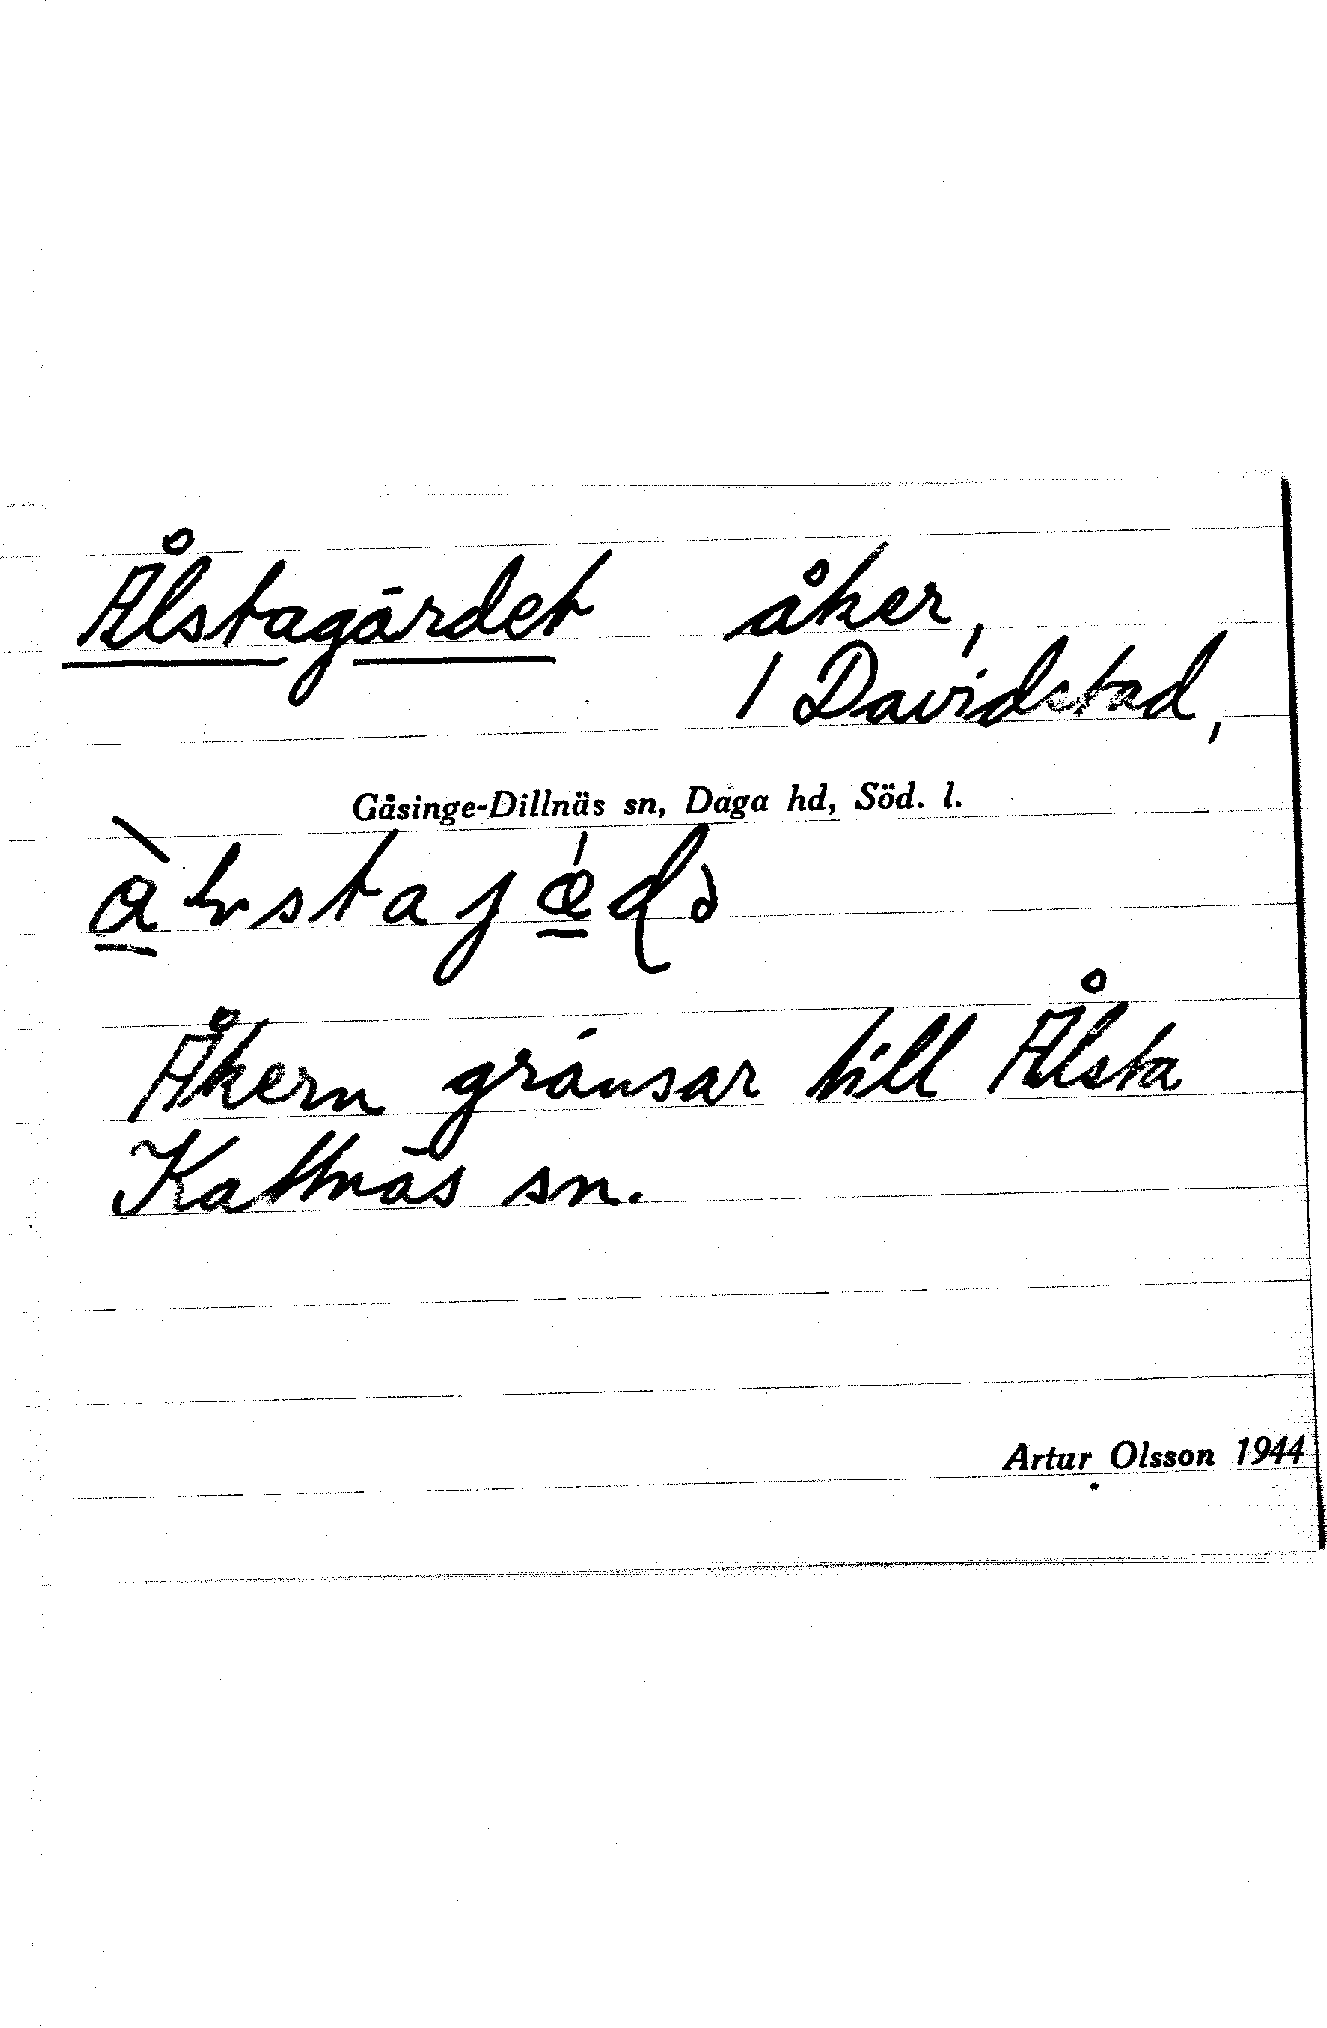 Ålstagärdet åker,
1 Davidstad,
Gåsinge-Dillnäs sn, Daga hd, Söd. l.
Åkern gränsar till Ålsta
Kattnäs sn.
Artur Olsson 1944